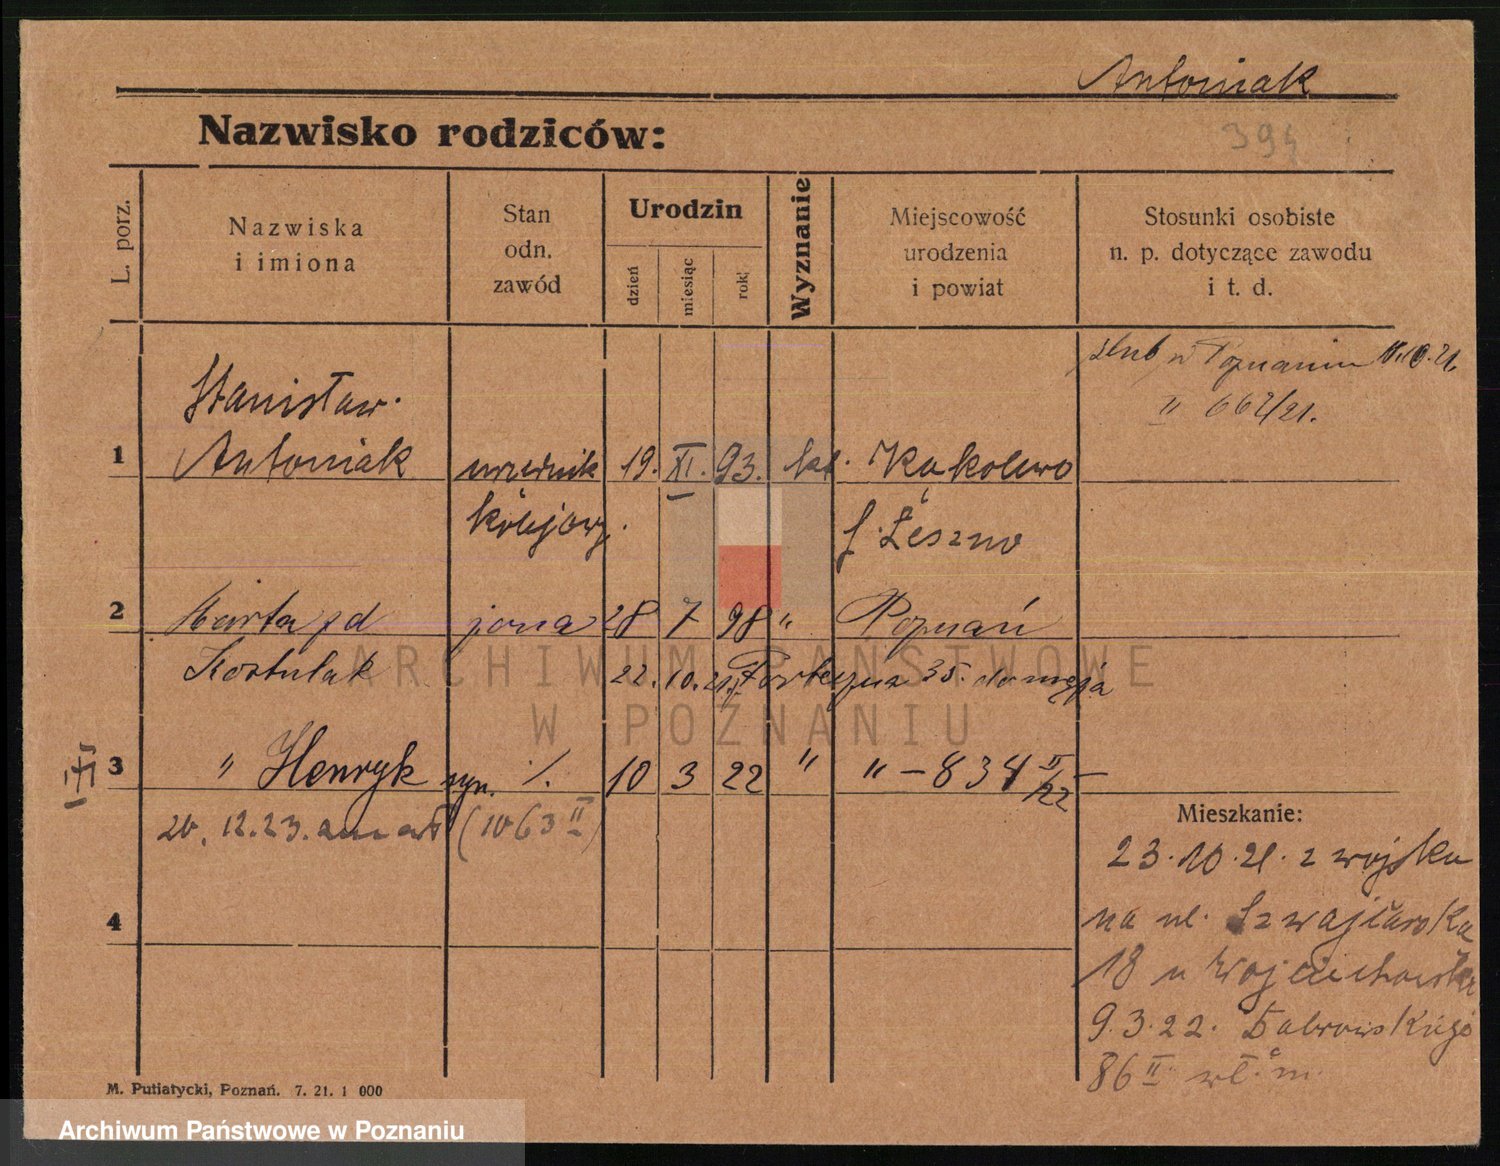 Antoniak
394
Nazwisko rodziców:
L. porz.
Nazwiska
i imiona
Stan
odn.
zawód
Urodzin
dzień
miesiąc
rok
Wyznanie
Miejscowość
urodzenia
i powiat
Stosunki osobiste
n. p. dotyczące zawodu
i t. d.
ślub w Poznaniu 11.10.21.
II 667/21.
Stanisław
1 Antoniak urzednik 19. XI. 93. kat. Kąkolewo
kolejowy. Leszno
2 Marta zd żona 28 7 98 " Poznań
Kostulak 22. 10. 21. Forteczna 35. do męża
3 " Henryk syn. /. 10 3 22 " " – 834 II/22 –
20. 12. 23. zmarł (1063 II)
4
Mieszkanie:
23. 10. 21. z wojska
na ul. Szwajcarska
18 u Wojciechowska
9. 3. 22. Dąbrowskiego
86 II wł. m.
M. Putiatycki, Poznań. 7. 21. 1 000
ARCHIWUM PAŃSTWOWE
W POZNANIU
Archiwum Państwowe w Poznaniu